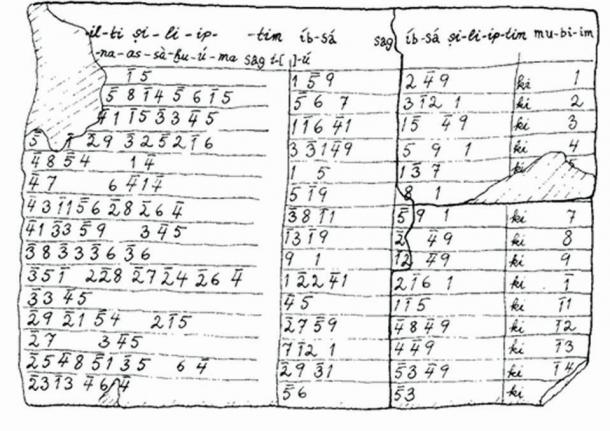 il-ti ṣi-li-ip- -tim íb-sá sag íb-sá ṣi-li-ip-tim mu-bi-im
-na-as-sà-ḫu-ú-ma sag i-[ ]-ú
1̄5 1 5̄9 2 4̄9 ki 1
5̄ 8 1̄4 5̄ 6 1̄5 5̄6 7 3 1̄2 1 ki 2
41 1̄5 3̄3 4̄5 1 1̄6 4̄1 1̄5 4 9 ki 3
5̄ 1̄ 2̄9 3̄2 5̄2 1̄6 3 3̄1 4̄9 5 9 1 ki 4
4̄8 5̄4 1 4̄ 1 5 1 3̄7 ki
4̄7 6 4̄1 4̄ 5 1̄9 8 1
4 3̄ 1̄1 5̄6 2̄8 2̄6 4̄ 3̄8 1̄1 5̄9 1 ki 7
4̄1 3̄3 5̄9 3 4̄5 1̄3 1̄9 2̄ 4̄9 ki 8
3̄8 3̄3 3̄6 3̄6 9 1 1̄2 4̄9 ki 9
3̄5 1̄ 2 2̄8 2̄7 2̄4 2̄6 4̄ 1 2̄2 4̄1 2 1̄6 1 ki 1̄
3̄3 4̄5 4̄5 1 1̄5 ki 1̄1
2̄9 2̄1 5̄4 2 1̄5 2̄7 5̄9 4̄8 4̄9 ki 1̄2
2̄7 3 4̄5 7 1̄2 1 4 4̄9 ki 1̄3
2̄5 4̄8 5̄1 3̄5 6 4̄ 2̄9 3̄1 5̄3 4̄9 ki 1̄4
2̄3 1̄3 4̄6 4̄ 5̄6 5̄3 ki